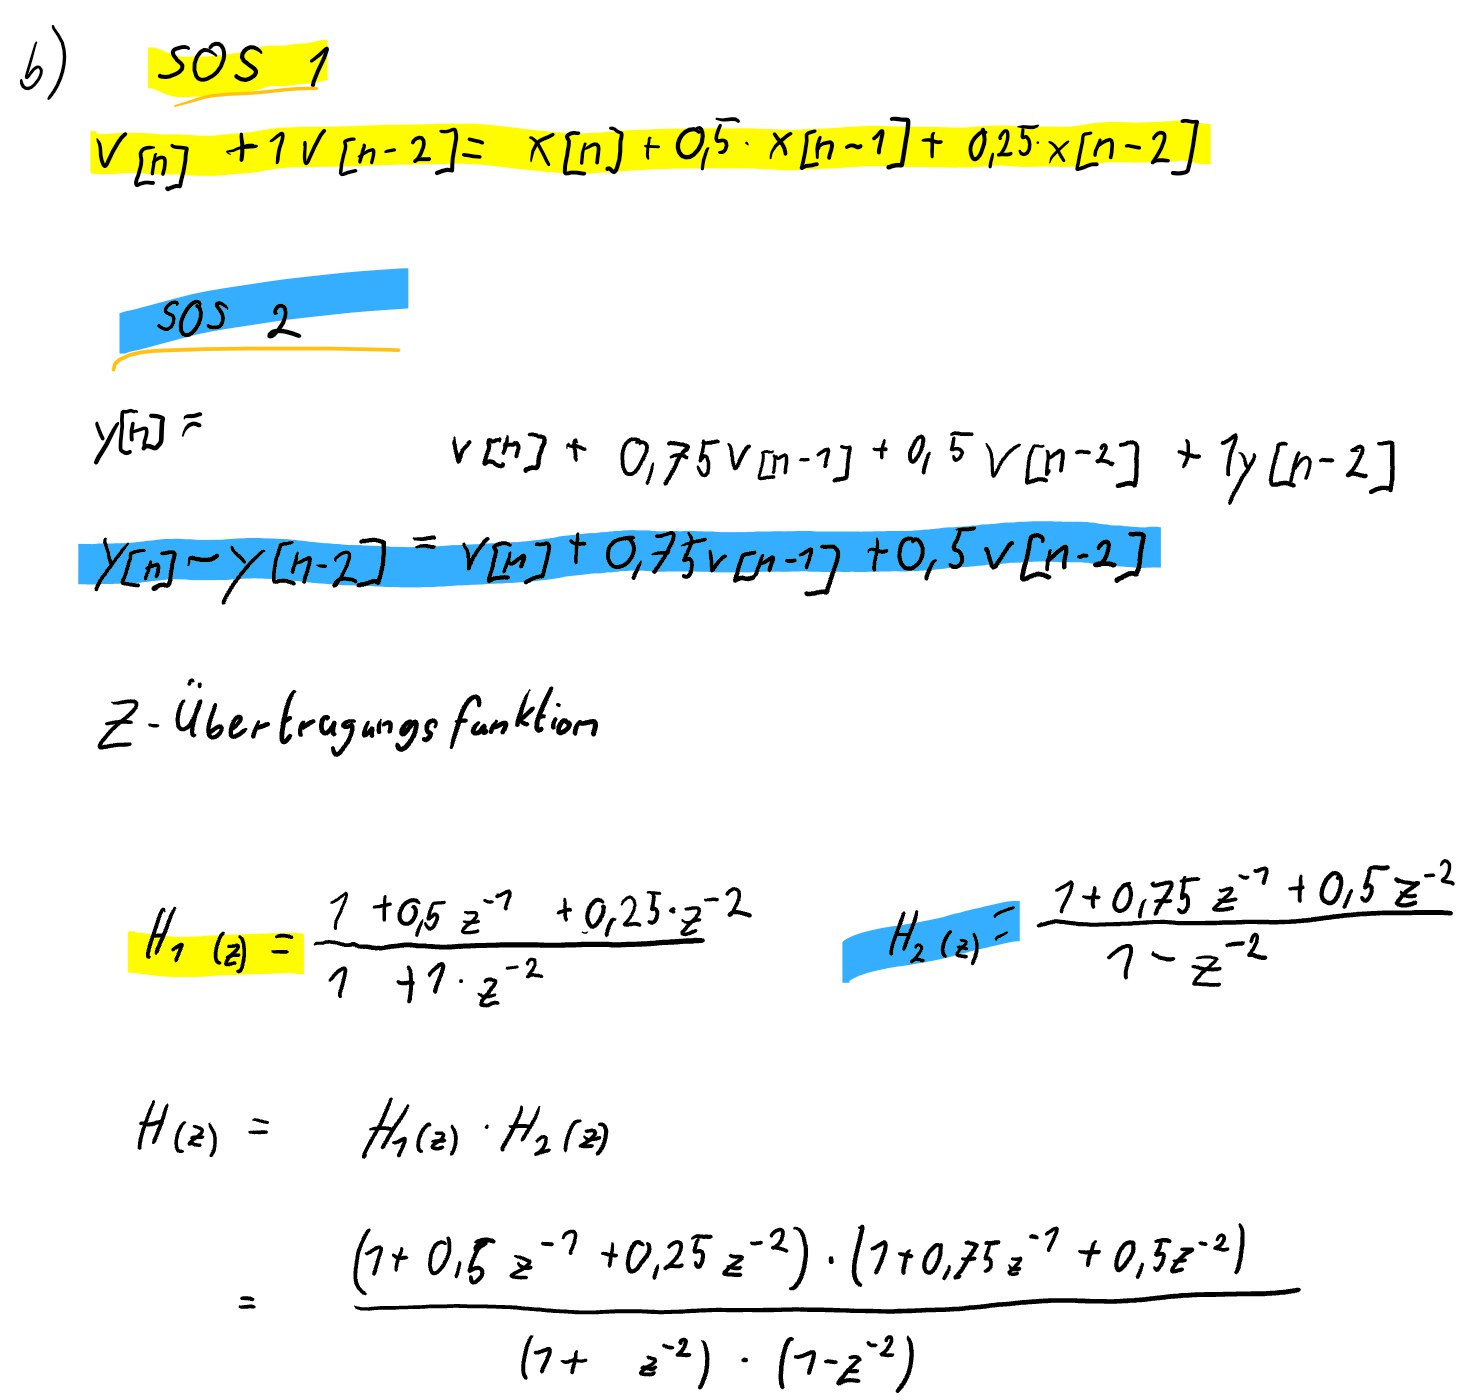 b) SOS 1
v[n] + 1 v[n-2] = x[n] + 0,5 · x[n-1] + 0,25 · x[n-2]
SOS 2
y[n] = v[n] + 0,75 v[n-1] + 0,5 v[n-2] + 1y[n-2]
y[n] - y[n-2] = v[n] + 0,75 v[n-1] + 0,5 v[n-2]
Z-Übertragungsfunktion
H₁(z) = (1 + 0,5 z⁻¹ + 0,25 · z⁻²) / (1 + 1 · z⁻²) H₂(z) = (1 + 0,75 z⁻¹ + 0,5 z⁻²) / (1 - z⁻²)
H(z) = H₁(z) · H₂(z)
= (1 + 0,5 z⁻¹ + 0,25 z⁻²) · (1 + 0,75 z⁻¹ + 0,5 z⁻²) / (1 + z⁻²) · (1 - z⁻²)